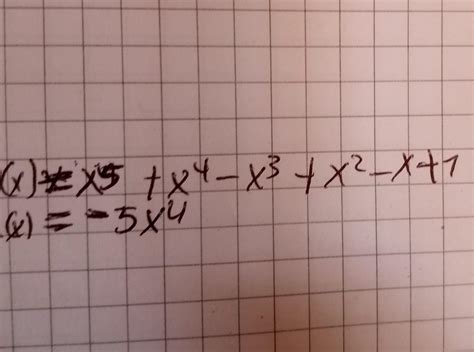 (x) = x5 + x⁴ - x³ + x² - x + 1
(x) = -5x⁴